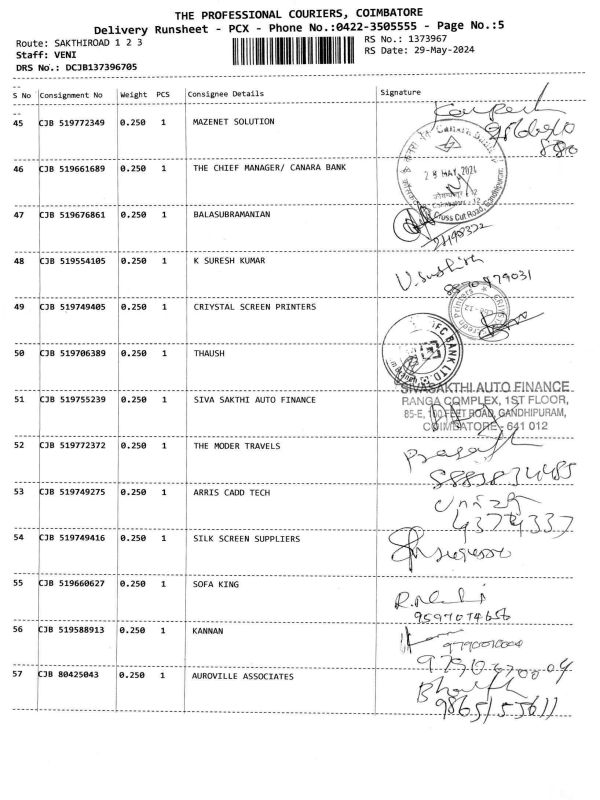 THE PROFESSIONAL COURIERS, COIMBATORE
Delivery Runsheet - PCX - Phone No.:0422-3505555 - Page No.:5
Route: SAKTHIROAD 1 2 3
RS No.: 1373967
Staff: VENI
RS Date: 29-May-2024
DRS No.: DCJB137396705
S No Consignment No Weight PCS Consignee Details Signature
45 CJB 519772349 0.250 1 MAZENET SOLUTION
46 CJB 519661689 0.250 1 THE CHIEF MANAGER/ CANARA BANK
Canara
28 MAY 2024
Cross Cut Road, Gandhipuram
47 CJB 519676861 0.250 1 BALASUBRAMANIAN
48 CJB 519554105 0.250 1 K SURESH KUMAR
49 CJB 519749405 0.250 1 CRIYSTAL SCREEN PRINTERS
Screen Printers
50 CJB 519706389 0.250 1 THAUSH
BANK LTD.
51 CJB 519755239 0.250 1 SIVA SAKTHI AUTO FINANCE
SIVASAKTHI AUTO FINANCE
RANGA COMPLEX, 1ST FLOOR,
85-E, 100 FEET ROAD, GANDHIPURAM,
COIMBATORE - 641 012
52 CJB 519772372 0.250 1 THE MODER TRAVELS
53 CJB 519749275 0.250 1 ARRIS CADD TECH
54 CJB 519749416 0.250 1 SILK SCREEN SUPPLIERS
55 CJB 519660627 0.250 1 SOFA KING
56 CJB 519588913 0.250 1 KANNAN
57 CJB 80425043 0.250 1 AUROVILLE ASSOCIATES